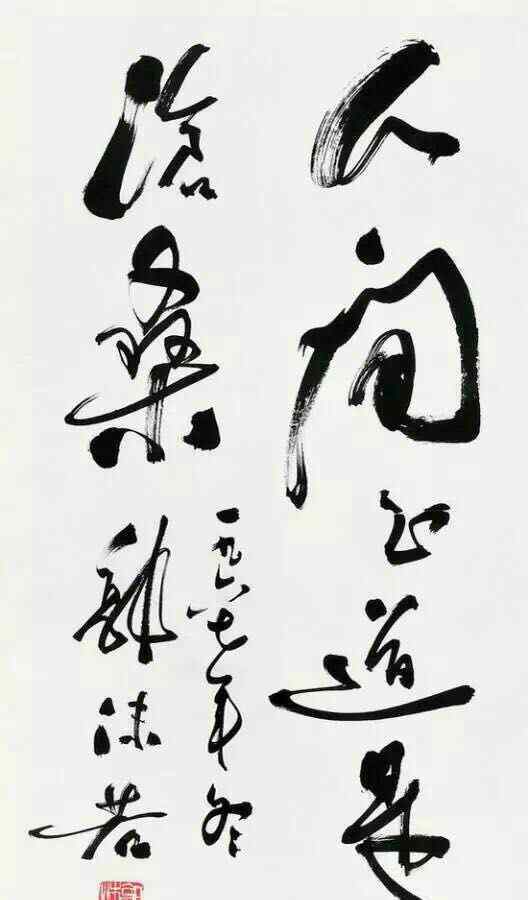 人间正道是
滄桑
一九六七年冬
郭沫若